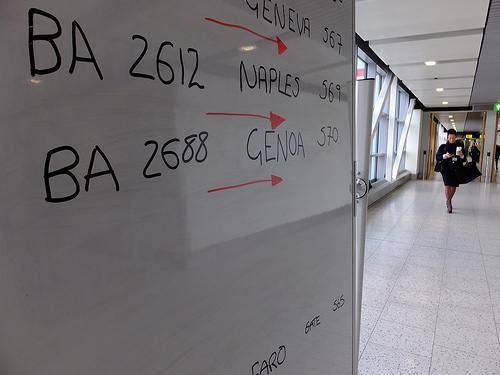 GENEVA 567
BA 2612 NAPLES 569
BA 2688 GENOA 570
GATE 565
FARO